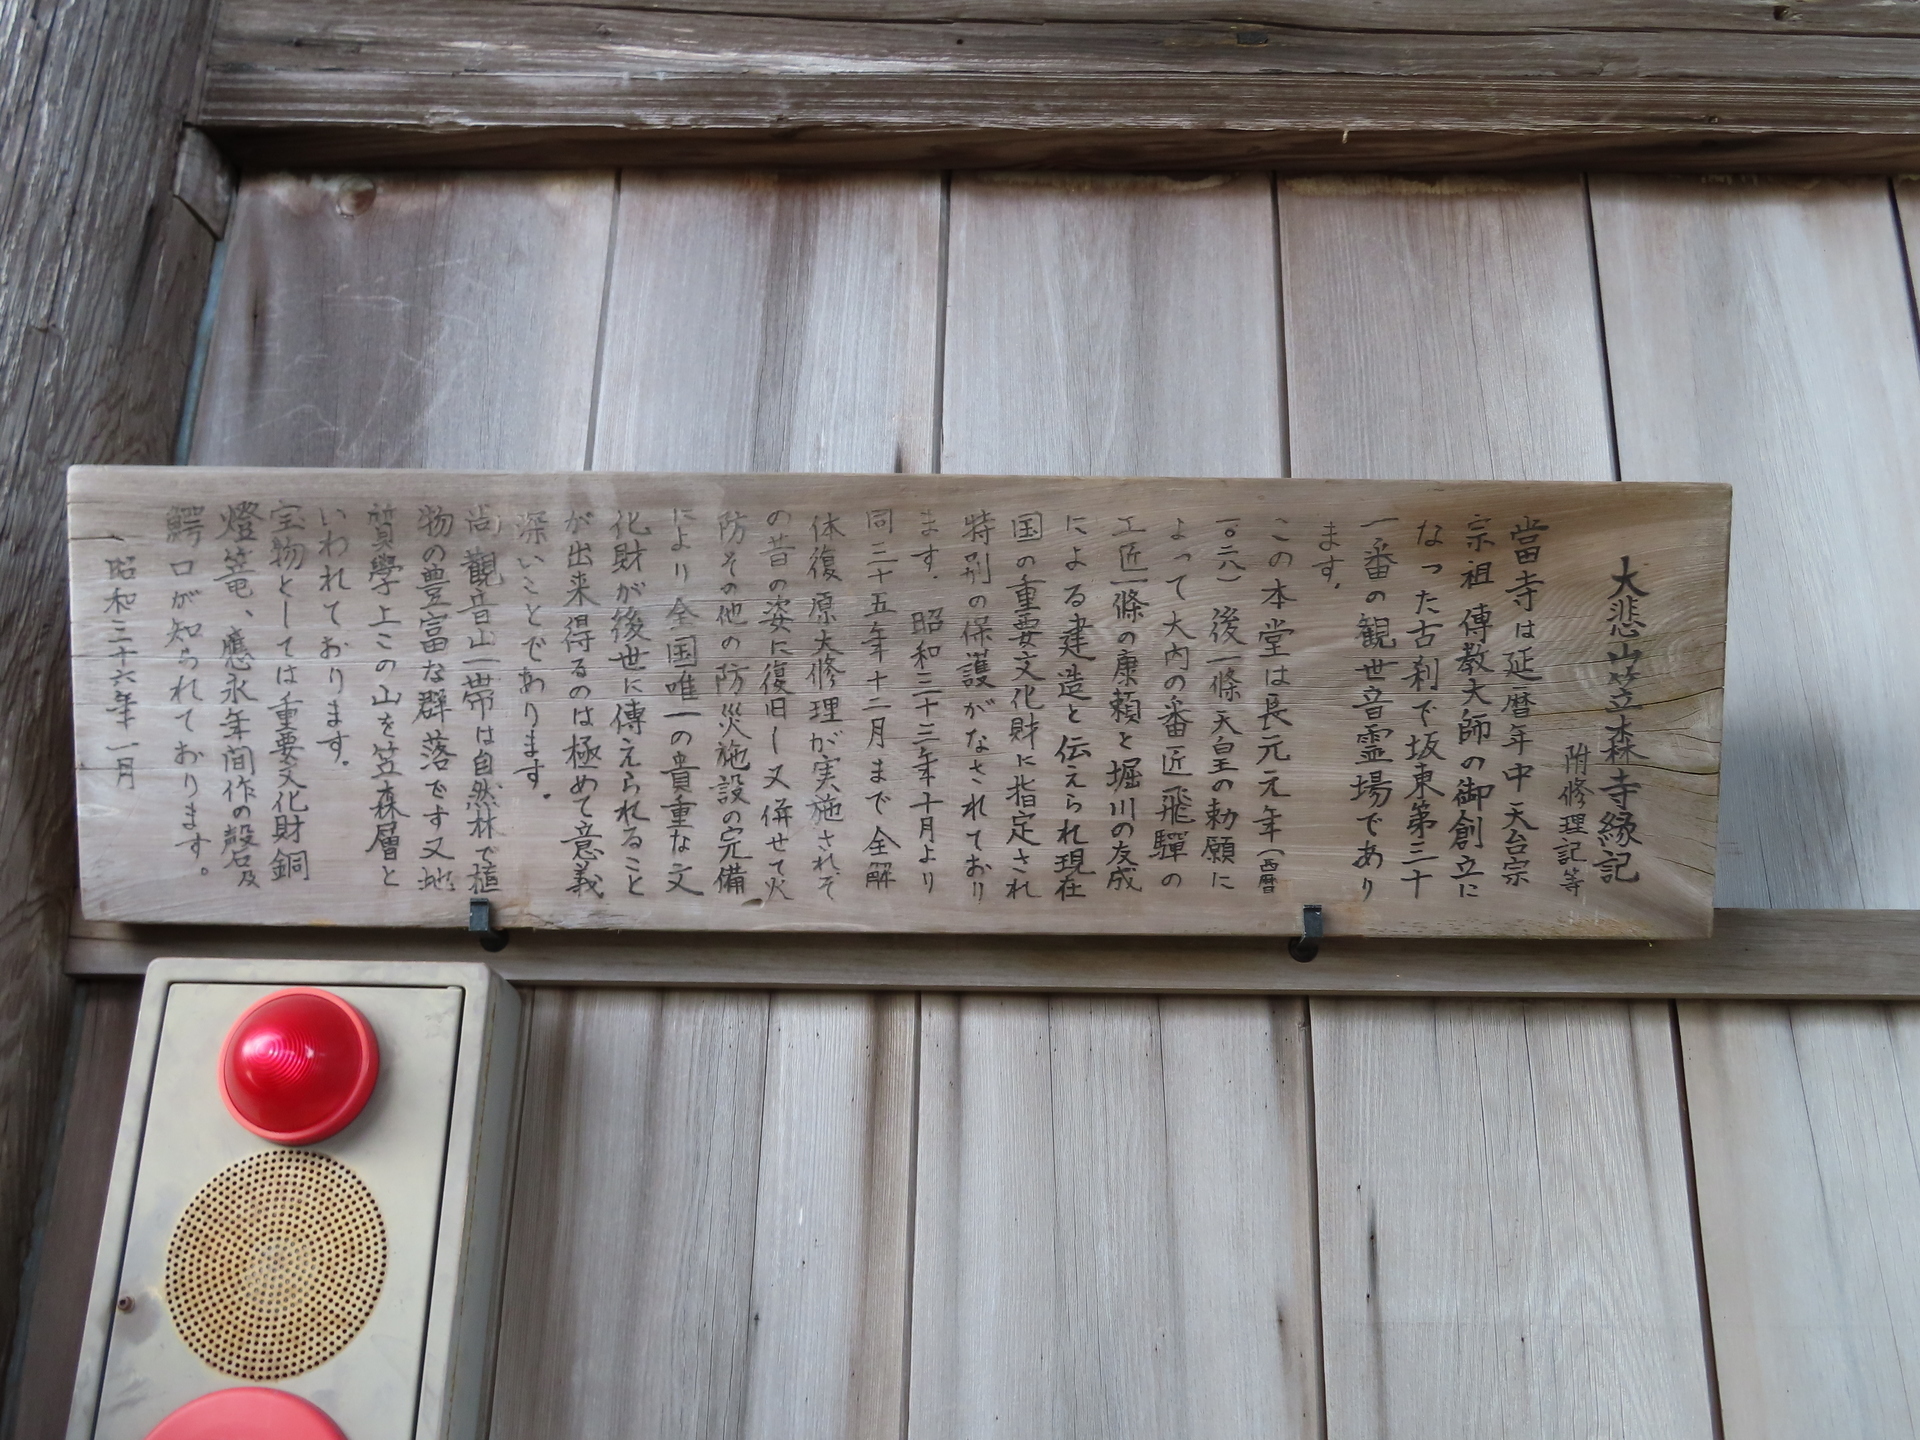 大悲山笠森寺縁記
附修理記等
當寺は延暦年中天台宗
宗祖傳教大師の御創立に
なった古刹で坂東第三十
一番の観世音霊場であり
ます。
この本堂は長元元年(西暦
一〇二八)後一條天皇の勅願に
よって大内の番匠飛騨の
工匠一條の康頼と堀川の友成
による建造と伝えられ現在
国の重要文化財に指定され
特別の保護がなされており
ます。昭和三十三年十月より
同三十五年十二月まで全解
体復原大修理が実施されそ
の昔の姿に復旧し又併せて火
防その他の防災施設の完備
により全国唯一の貴重な文
化財が後世に傳えられること
が出来得るのは極めて意義
深いことであります。
尚観音山一帯は自然林で植
物の豊富な群落です又地
質學上この山を笠森層と
いわれております。
宝物としては重要文化財銅
燈篭、應永年間作の磬及
鰐口が知られております。
昭和三十六年一月